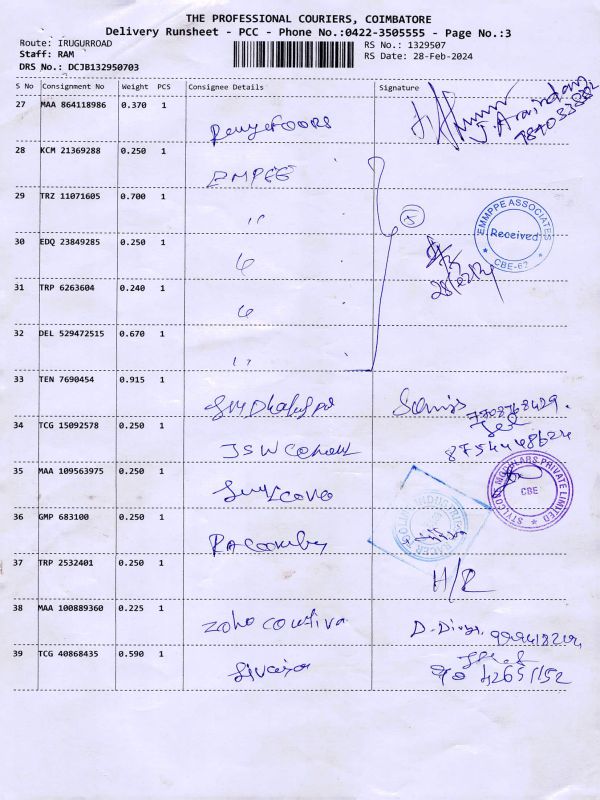 THE PROFESSIONAL COURIERS, COIMBATORE
Delivery Runsheet - PCC - Phone No.:0422-3505555 - Page No.:3
Route: IRUGURROAD
RS No.: 1329507
Staff: RAM
RS Date: 28-Feb-2024
DRS No.: DCJB132950703
S No Consignment No Weight PCS Consignee Details Signature
27 MAA 864118986 0.370 1
28 KCM 21369288 0.250 1 EMPEE
29 TRZ 11071605 0.700 1 "
5
EMMPPE ASSOCIATES
Received
CBE-62
30 EDQ 23849285 0.250 1
31 TRP 6263604 0.240 1
32 DEL 529472515 0.670 1 "
33 TEN 7690454 0.915 1
7708768429.
34 TCG 15092578 0.250 1 JSW
8754448624
35 MAA 109563975 0.250 1
STYLCOSE MODULARS PRIVATE LIMITED
CBE
36 GMP 683100 0.250 1
37 TRP 2532401 0.250 1 H/R
38 MAA 100889360 0.225 1 Zoho
39 TCG 40868435 0.590 1
90 42651152